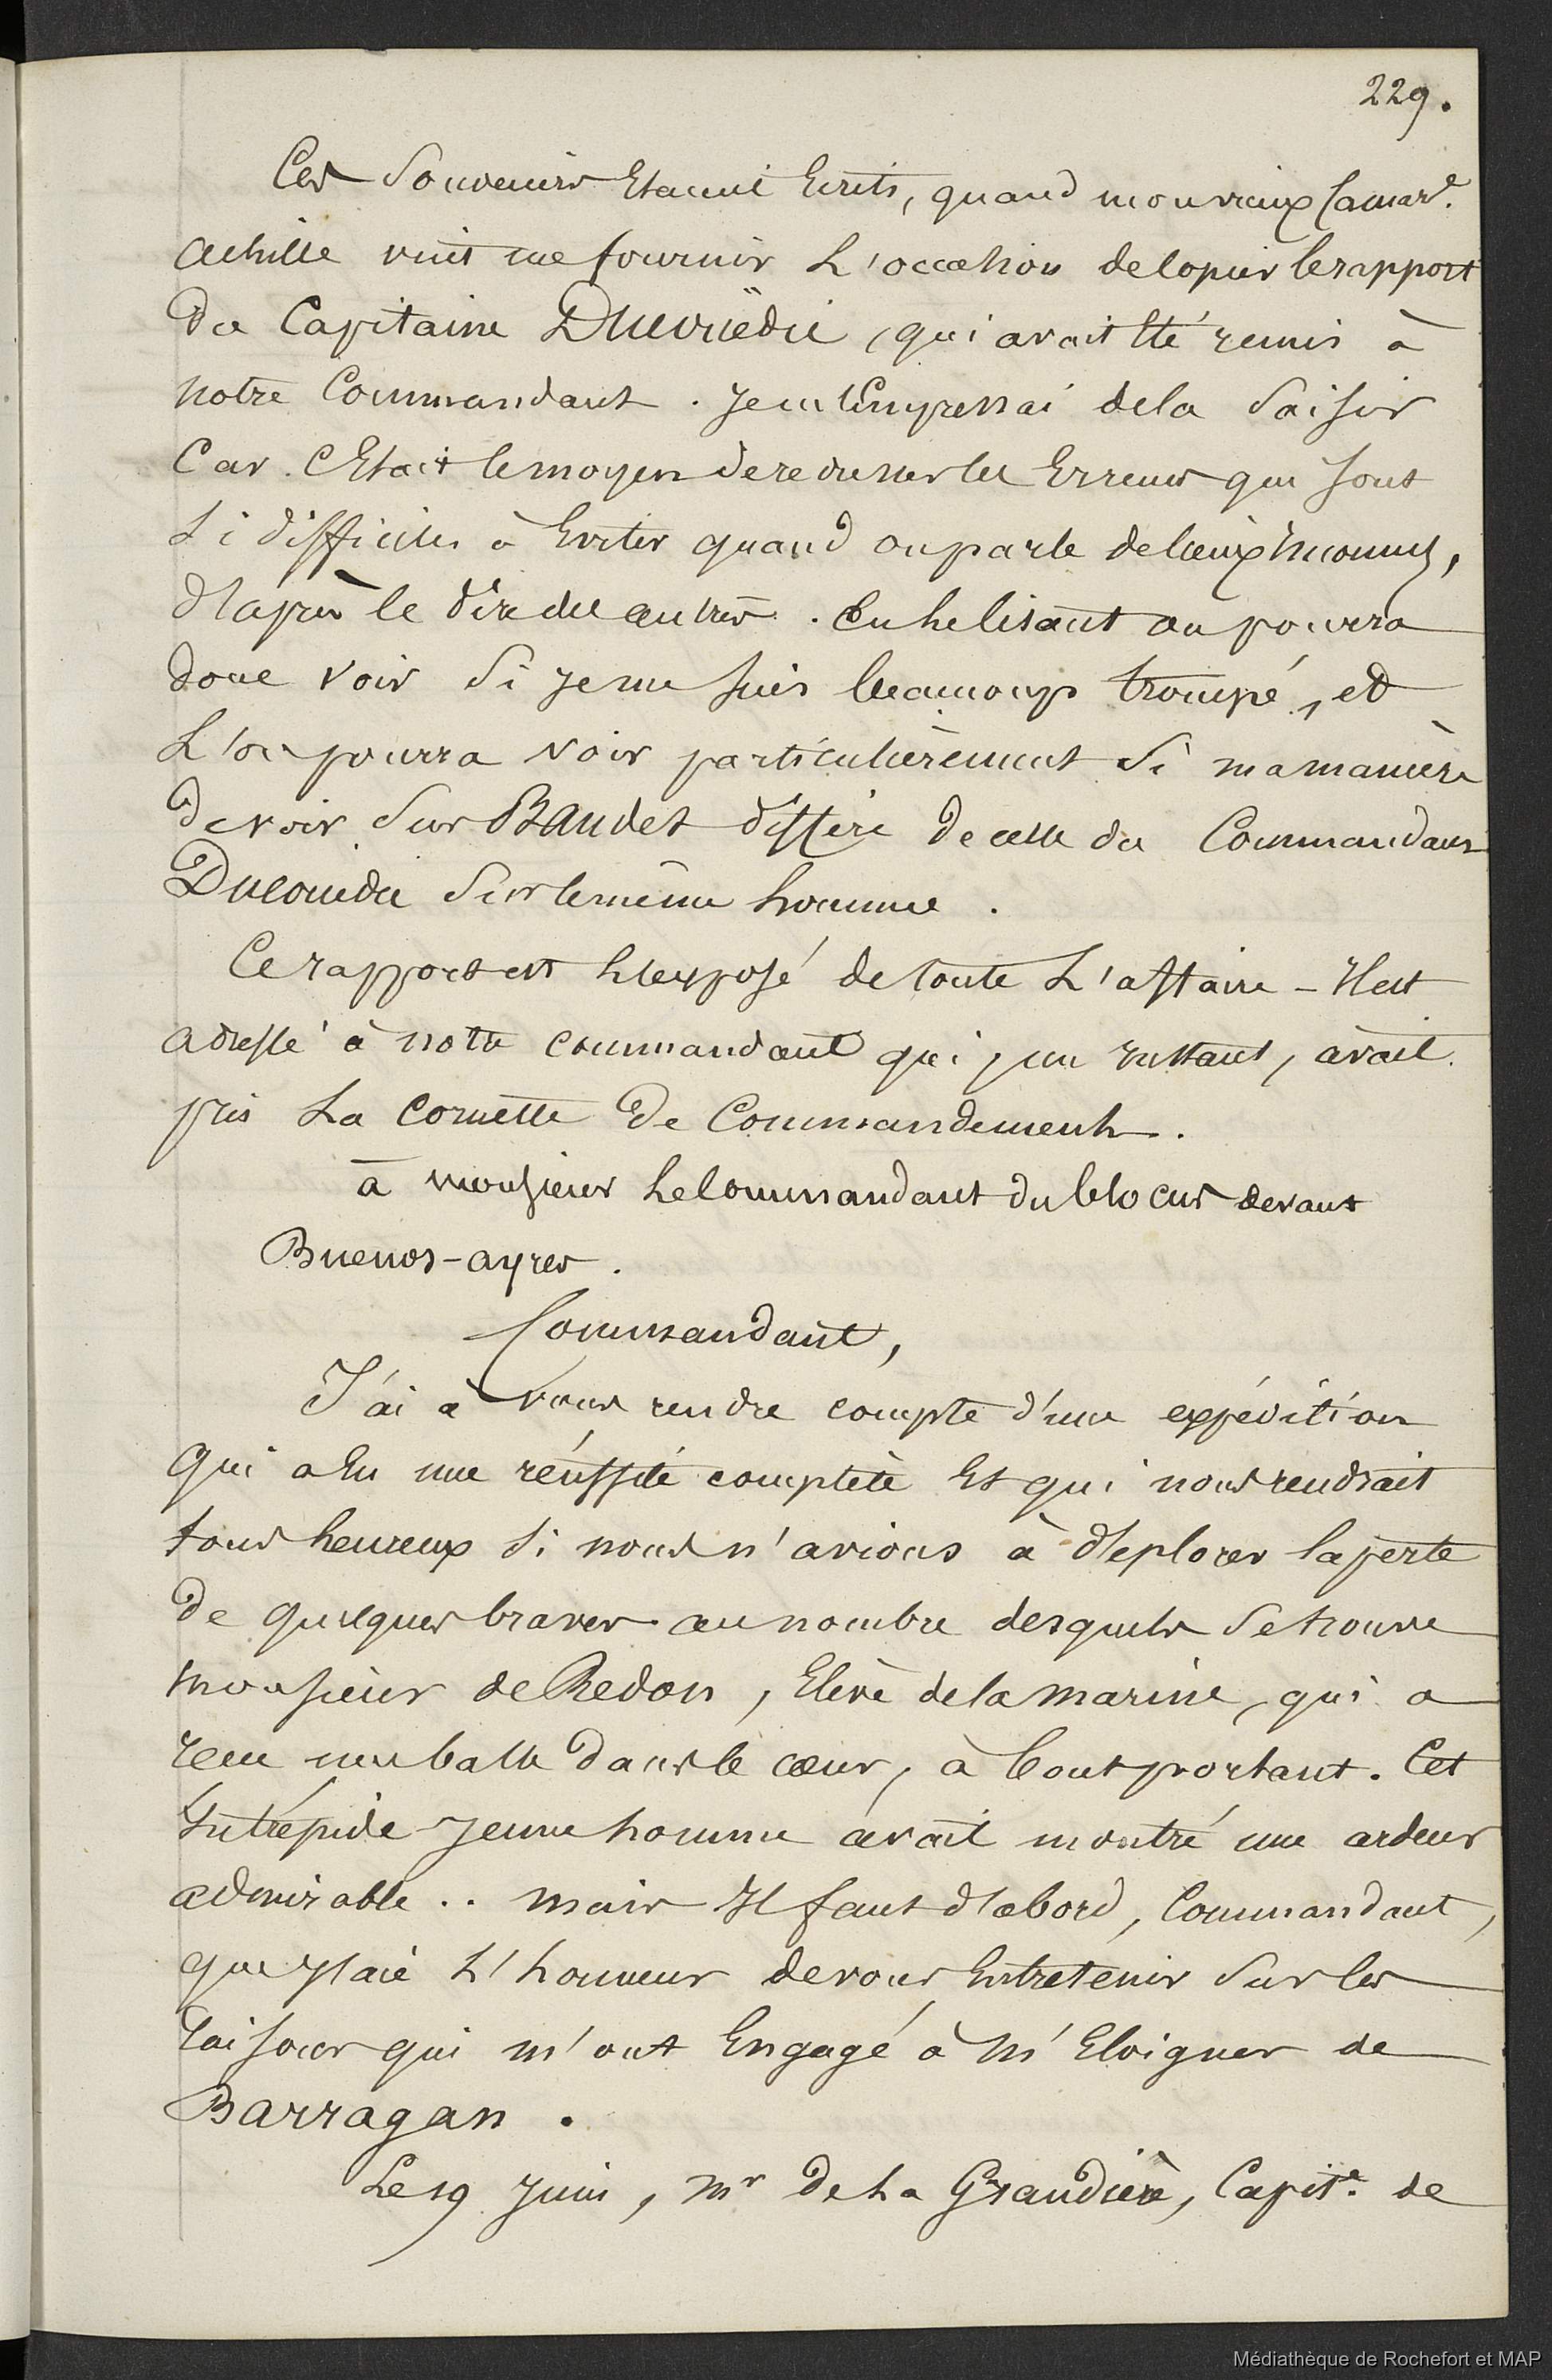 229.
Ces Souvenirs Etaient Ecrits, quand mon vieux Camard.
Achille vint me fournir L'occasion de Copier le rapport
du Capitaine Ducouëdic, qui avait Eté remis à
notre Commandant. Je m'Empressai de la Saisir
Car C'Etait le moyen de redresser les Erreurs qui sont
Si difficiles à Eviter quand on parle de lieux Inconnus,
d'après le dire des autres. En le lisant on pourra
donc voir Si je me suis beaucoup trompé, et
L'on pourra voir particulièrement Si ma manière
de voir Sur Baudet diffère de celle du Commandant
Ducouëdic Sur le même homme.
Ce rapport est L'exposé de toute L'affaire - Il est
adressé à notre commandant qui, un Instant, avait
pris La Cornette de Commandement.
à monsieur Le Commandant du blocus devant
Buenos-ayres.
Commandant,
J'ai à vous rendre compte d'une expédition
qui a Eu une réussite complète Et qui nous rendrait
tous heureux Si nous n'avions à déplorer la perte
de quelques braves au nombre desquels Se trouve
monsieur de Redon, Elève de la marine, qui a
reçu une balle dans le cœur, à bout portant. Cet
Intrépide Jeune homme avait montré une ardeur
admirable.. mais Il faut d'abord, Commandant,
que J'aie L'honneur de vous Entretenir Sur les
raisons qui m'ont Engagé à m'Eloigner de
Barragan.
Le 19 Juin, Mr de La Grandière, Capite. de
Médiathèque de Rochefort et MAP